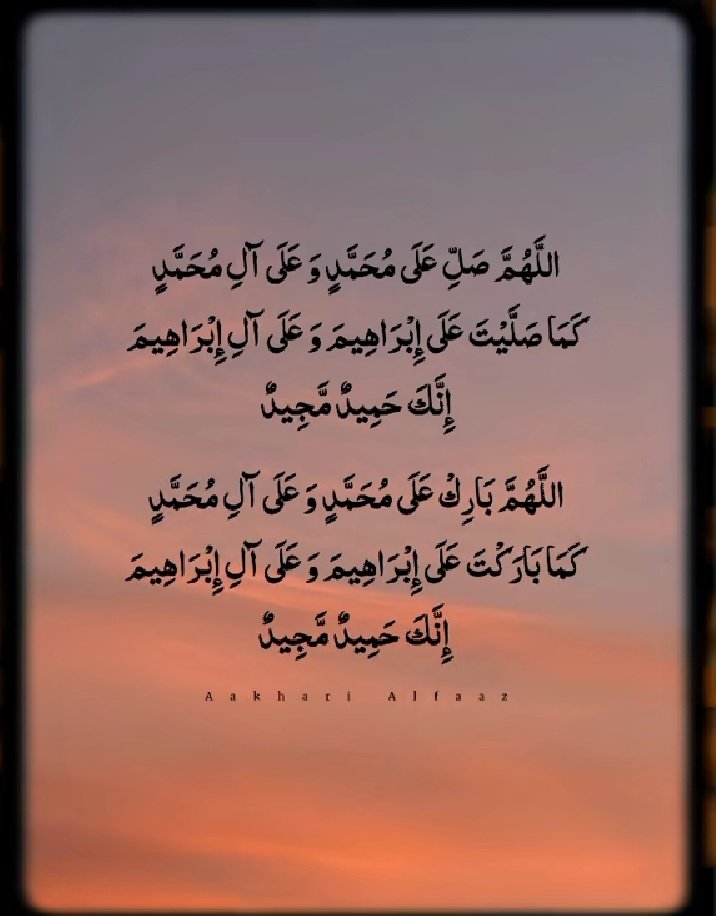 اللَّهُمَّ صَلِّ عَلَى مُحَمَّدٍ وَ عَلَى آلِ مُحَمَّدٍ
كَمَا صَلَّيْتَ عَلَى إِبْرَاهِيمَ وَ عَلَى آلِ إِبْرَاهِيمَ
إِنَّكَ حَمِيدٌ مَّجِيدٌ
اللَّهُمَّ بَارِكْ عَلَى مُحَمَّدٍ وَ عَلَى آلِ مُحَمَّدٍ
كَمَا بَارَكْتَ عَلَى إِبْرَاهِيمَ وَ عَلَى آلِ إِبْرَاهِيمَ
إِنَّكَ حَمِيدٌ مَّجِيدٌ
Aakhari Alfaaz